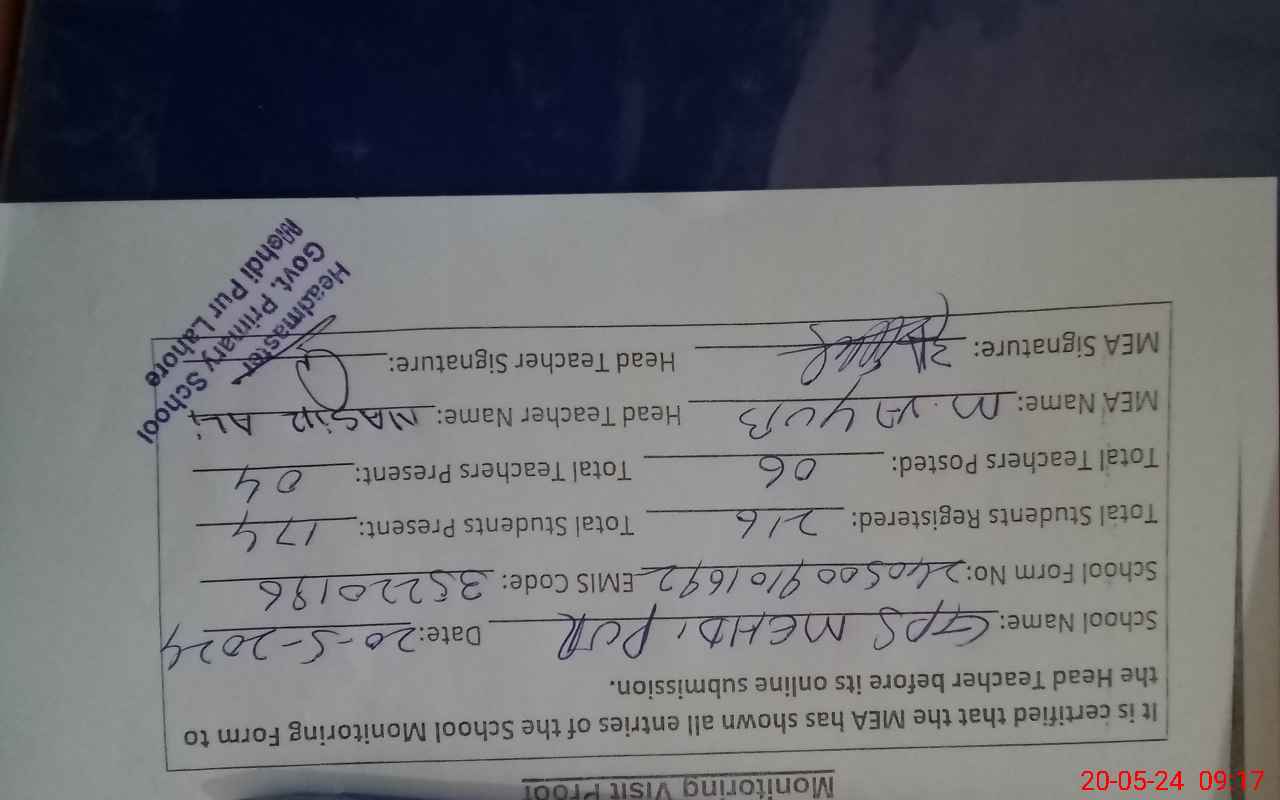 Monitoring Visit Proof
It is certified that the MEA has shown all entries of the School Monitoring Form to
the Head Teacher before its online submission.
School Name: GPS MEHDI PUR Date: 20-5-2024
School Form No: 2405009101692 EMIS Code: 35220186
Total Students Registered: 216 Total Students Present: 174
Total Teachers Posted: 06 Total Teachers Present: 04
MEA Name: M. AYUB Head Teacher Name: NASIR ALi
MEA Signature: Head Teacher Signature:
Headmaster
Govt. Primary School
Mehdi Pur Lahore
20-05-24 09:17